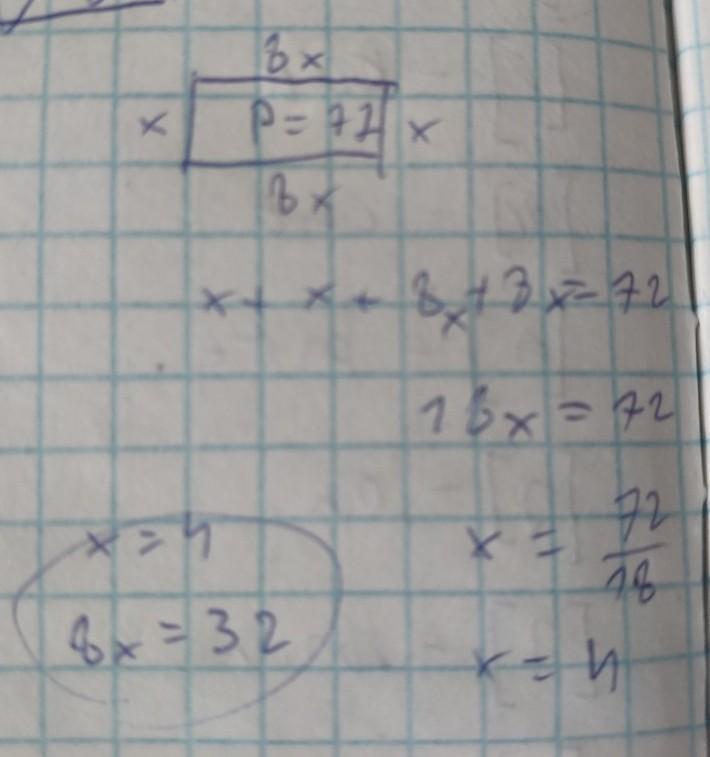 8x
x P = 72 x
8x
x + x + 8x + 8x = 72
18x = 72
x = 72/18
x = 4
x = 4
8x = 32